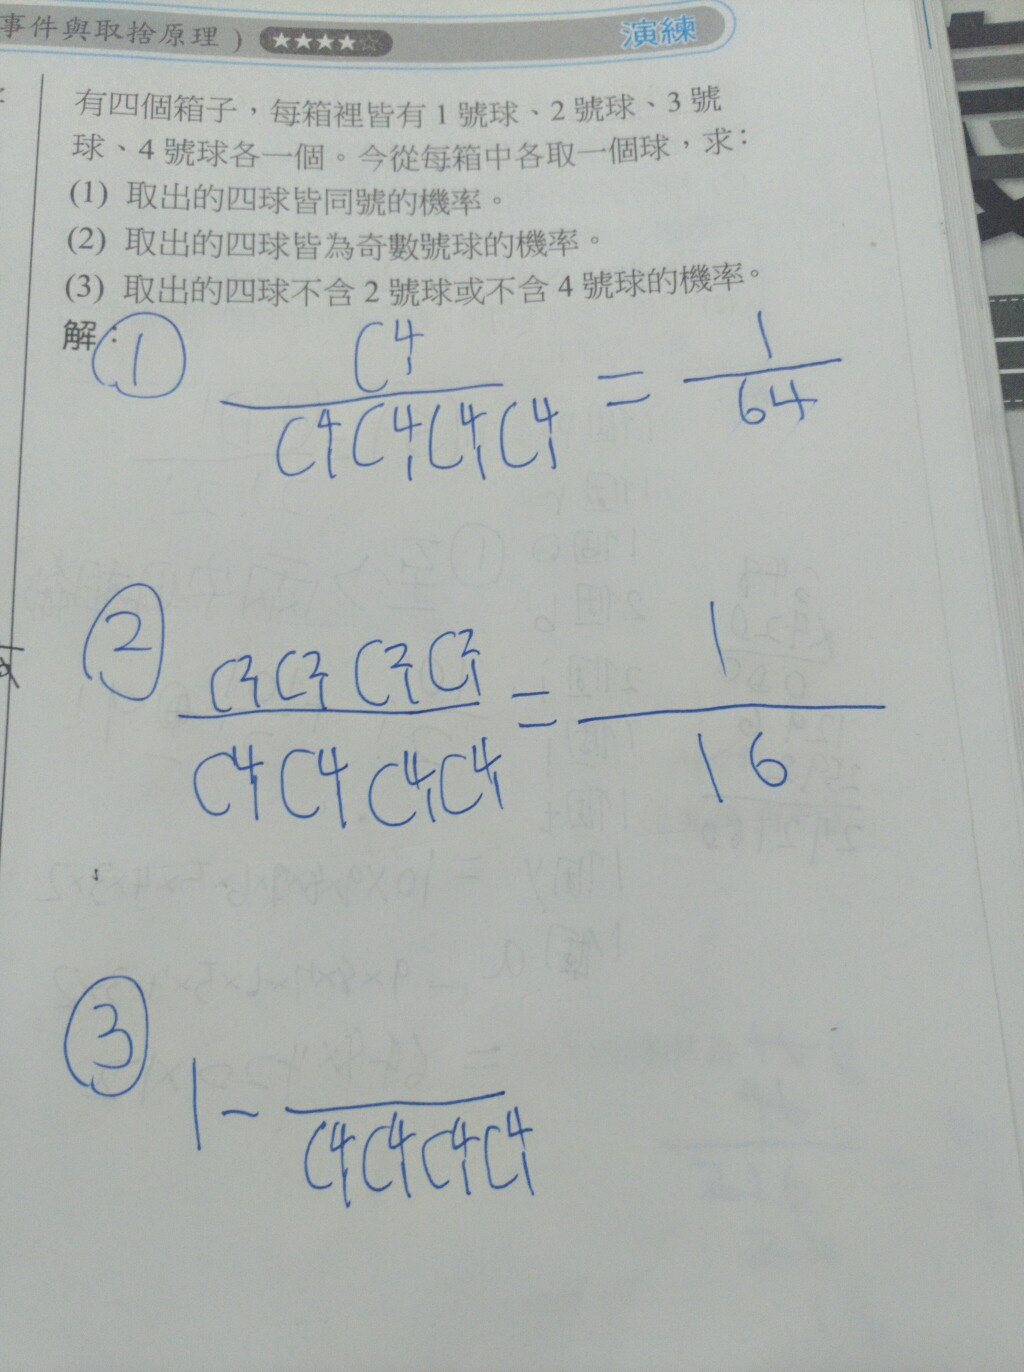 事件與取捨原理) ★★★★☆ 演練
有四個箱子，每箱裡皆有 1 號球、2 號球、3 號
球、4 號球各一個。今從每箱中各取一個球，求：
(1) 取出的四球皆同號的機率。
(2) 取出的四球皆為奇數號球的機率。
(3) 取出的四球不含 2 號球或不含 4 號球的機率。
解：
① C⁴₁ / C⁴₁C⁴₁C⁴₁C⁴₁ = 1 / 64
② C²₁C²₁C²₁C²₁ / C⁴₁C⁴₁C⁴₁C⁴₁ = 1 / 16
③ 1 - / C⁴₁C⁴₁C⁴₁C⁴₁